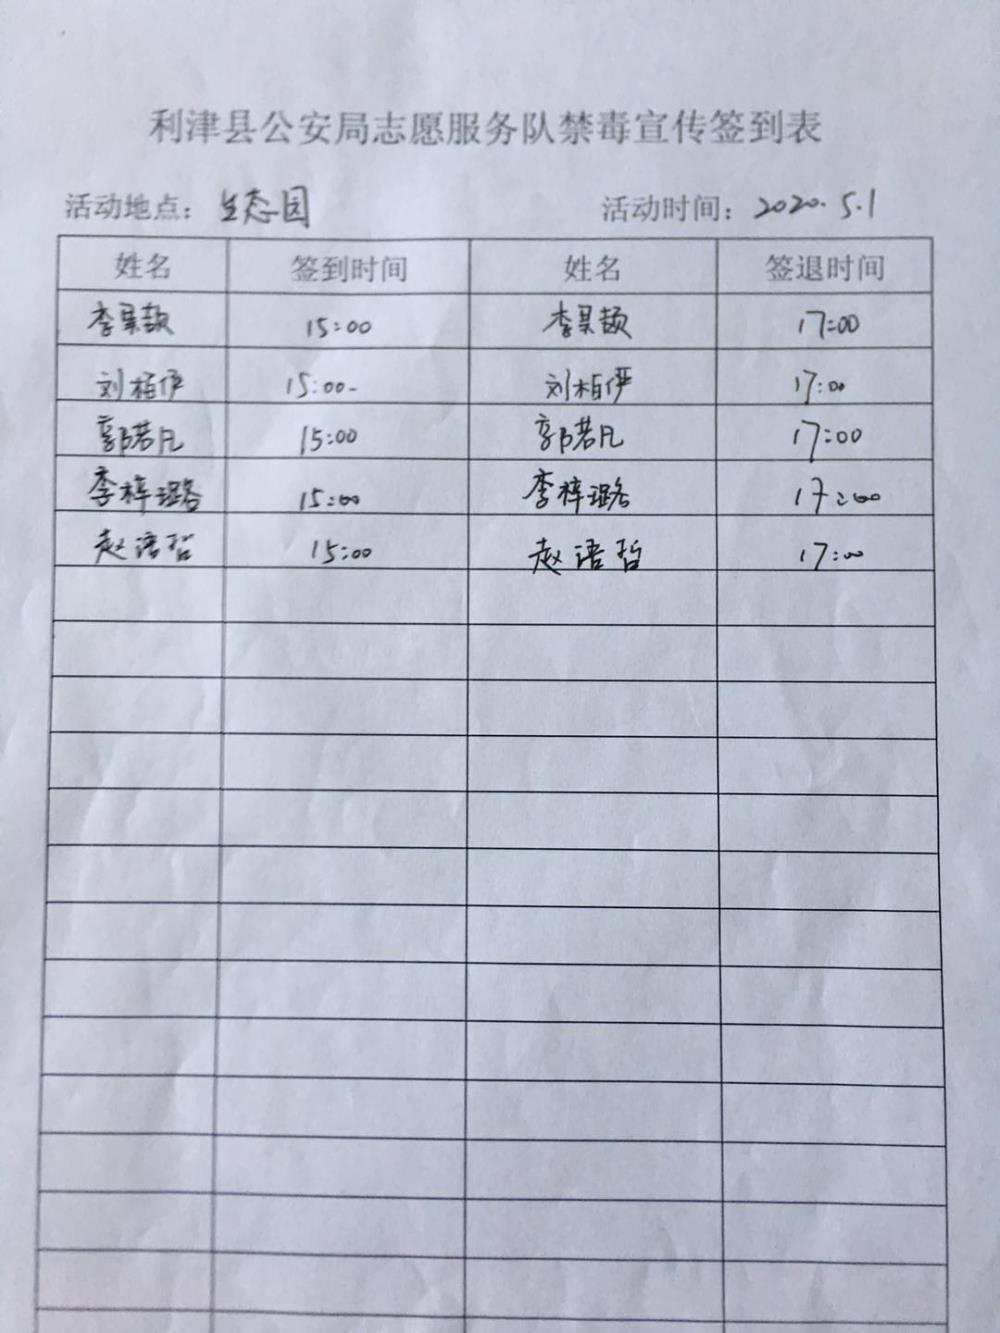 利津县公安局志愿服务队禁毒宣传签到表
活动地点：生态园 活动时间：2020.5.1
姓名 签到时间 姓名 签退时间
李昊颉 15:00 李昊颉 17:00
刘柏伊 15:00- 刘柏伊 17:00
郭若凡 15:00 郭若凡 17:00
李梓璐 15:00 李梓璐 17:00
赵语哲 15:00 赵语哲 17:00